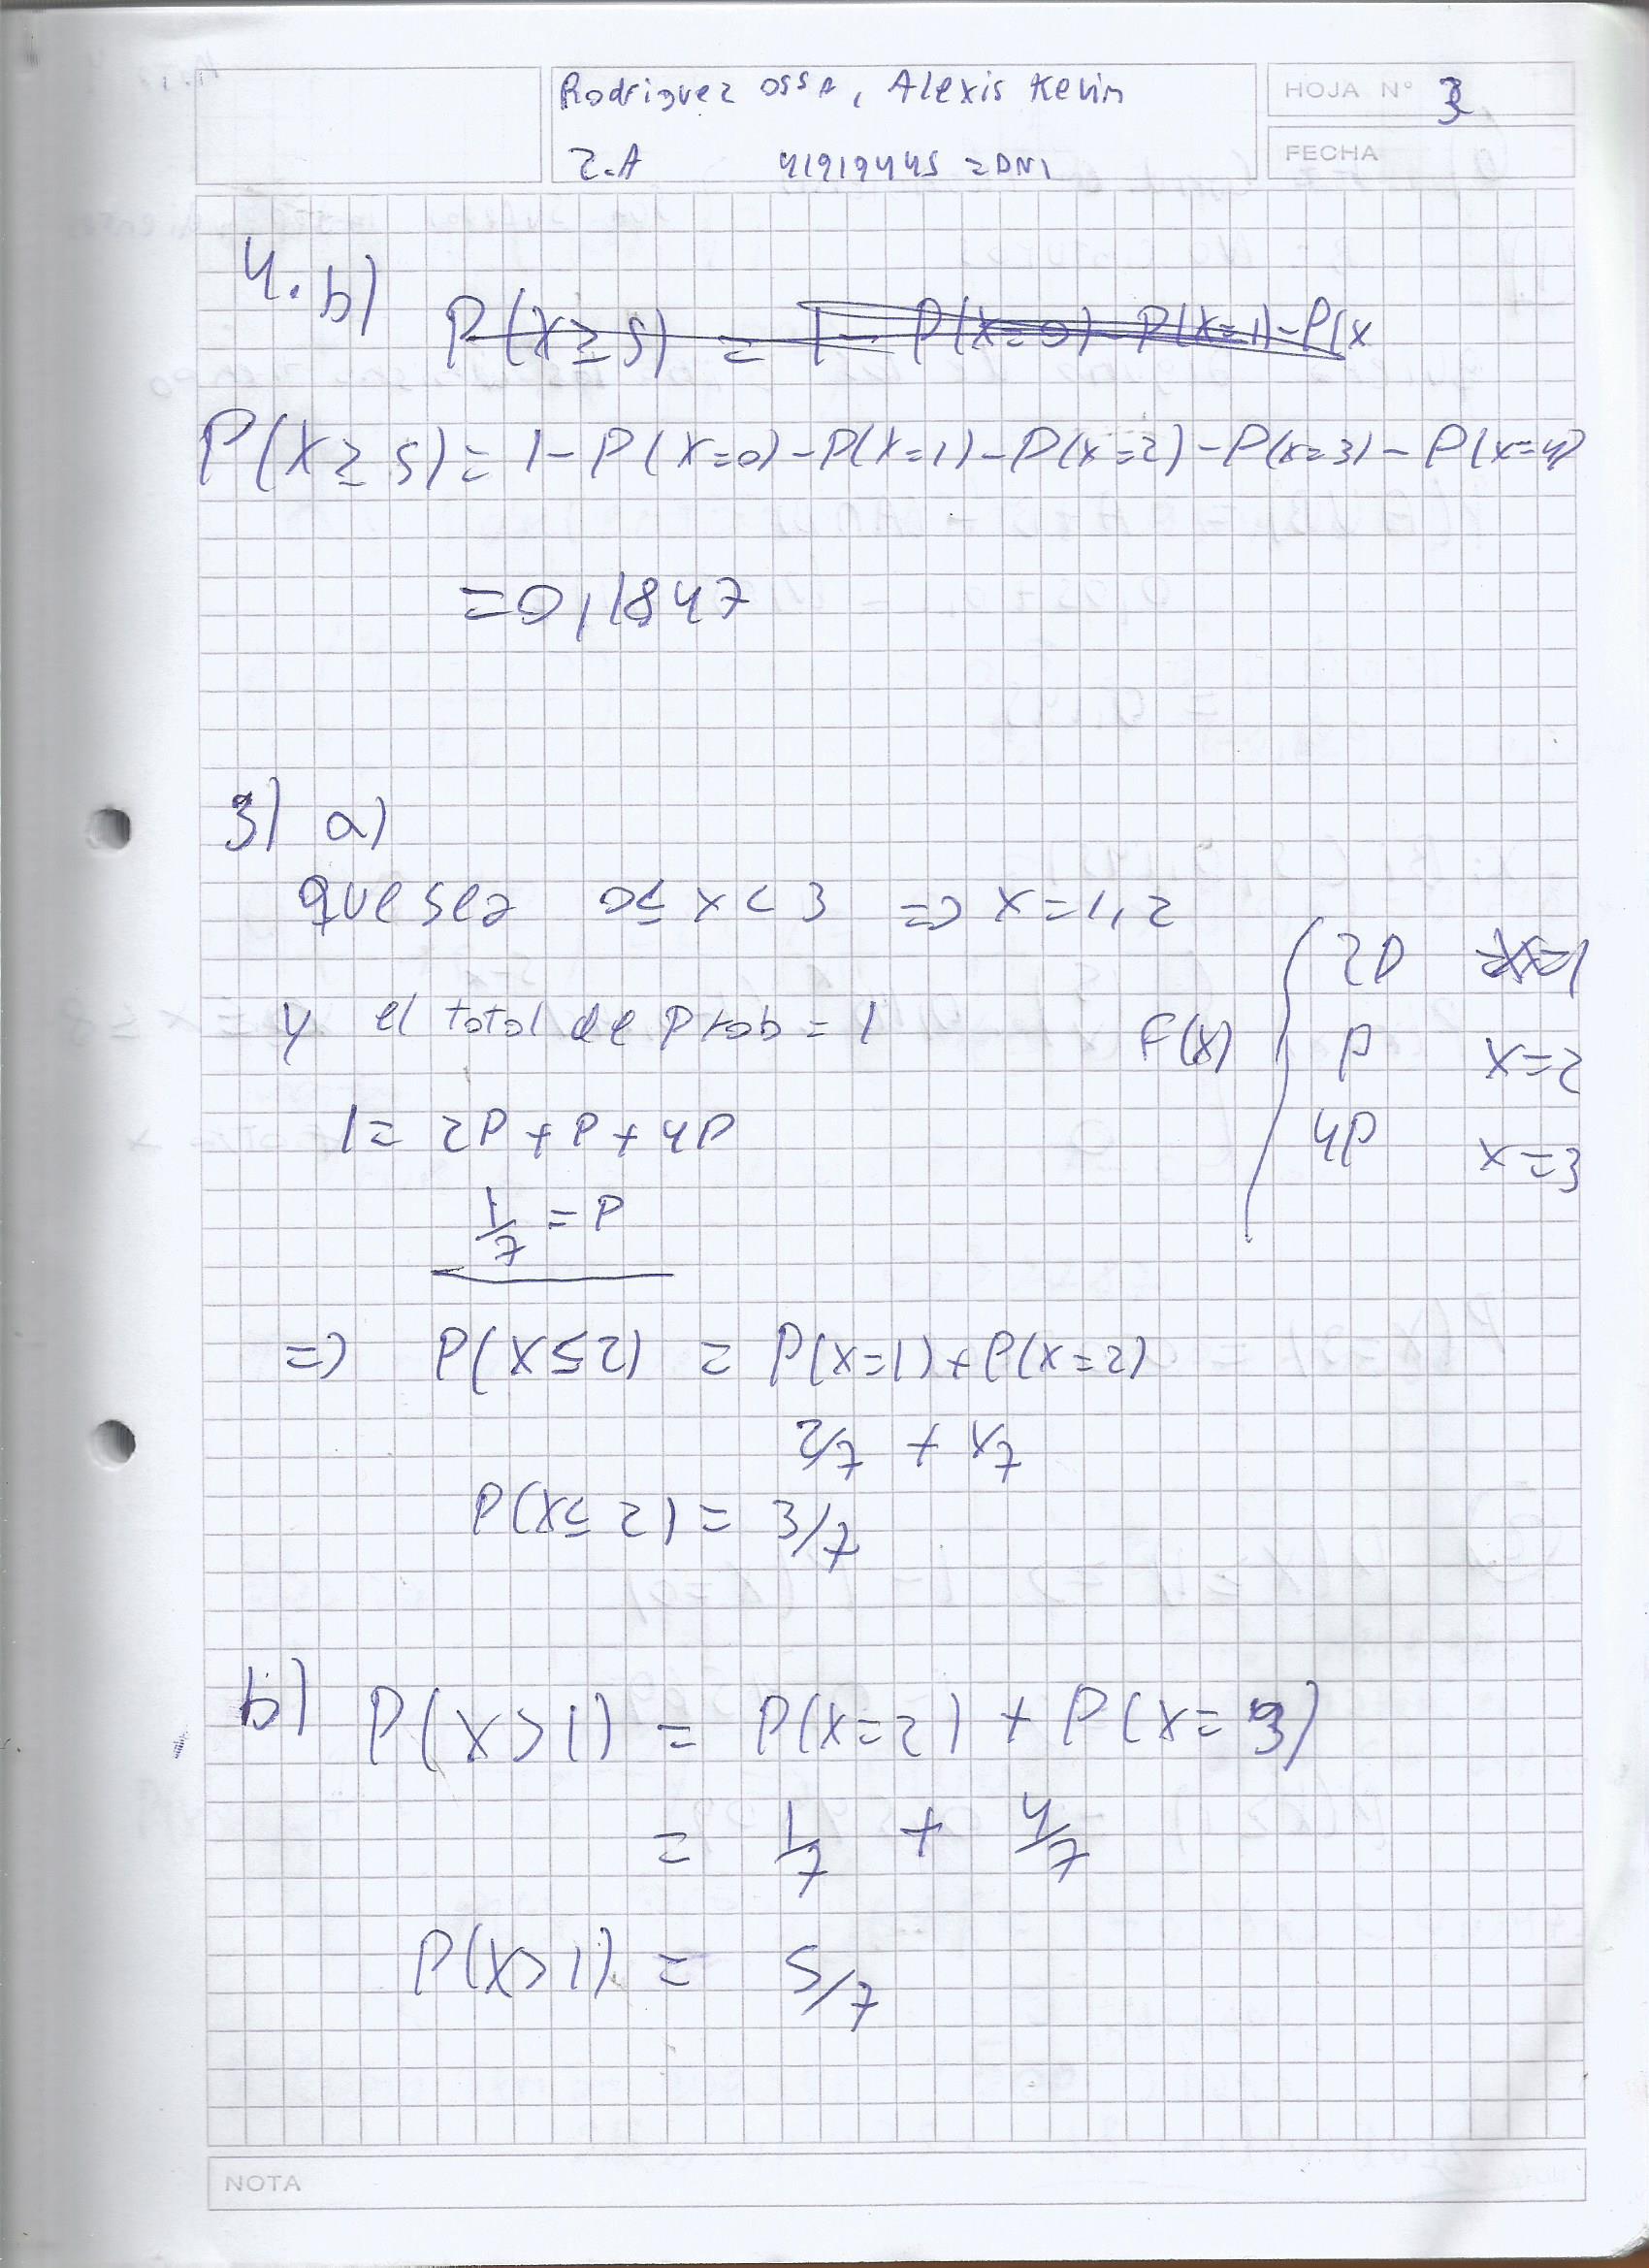 Rodriguez ossa, Alexis Kevin
HOJA N° 3
2.A 41919445 = DNI
FECHA
4.b) P(X≥5) = 1-P(X=0)-P(X=1)-P(X
P(X≥5)=1-P(X=0)-P(X=1)-P(X=2)-P(X=3)-P(X=4)
=0,1847
3) a)
que sea 0≤x<3 => x=1,2
y el total de prob = 1
F(x) { 2P x=1
P x=2
4P x=3
1= 2P+P+4P
1/7 = P
=> P(X≤2) = P(X=1)+P(X=2)
2/7 + 1/7
P(X≤2)= 3/7
b) P(X>1) = P(X=2) + P(X=3)
= 1/7 + 4/7
P(X>1) = 5/7
NOTA